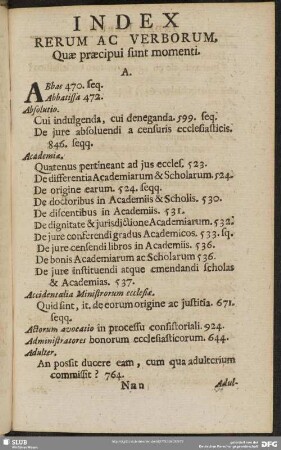 INDEX
RERUM AC VERBORUM,
Quæ præcipui sunt momenti.
A.
ABbas 470. seq.
Abbatissa 472.
Absolutio.
Cui indulgenda, cui deneganda. 599. seq.
De jure absolvendi a censuris ecclesiasticis.
846. seqq.
Academia.
Quatenus pertineant ad jus eccles. 523.
De differentia Academiarum & Scholarum. 524.
De origine earum. 524. seqq.
De doctoribus in Academiis & Scholis. 530.
De discentibus in Academiis. 531.
De dignitate & jurisdictione Academiarum. 532.
De jure conferendi gradus Academicos. 533. sq.
De jure censendi libros in Academiis. 536.
De bonis Academiarum ac Scholarum 536.
De jure instituendi atque emendandi scholas
& Academias. 537.
Accidentalia Ministrorum ecclesiæ.
Quid sint, it. de eorum origine ac justitia. 671.
seqq.
Actorum avocatio in processu consistoriali. 924.
Administratores bonorum ecclesiasticorum. 644.
Adulter.
An possit ducere eam, cum qua adulterium
commisit? 764.
Nnn
Adul-
SLUB
DFG